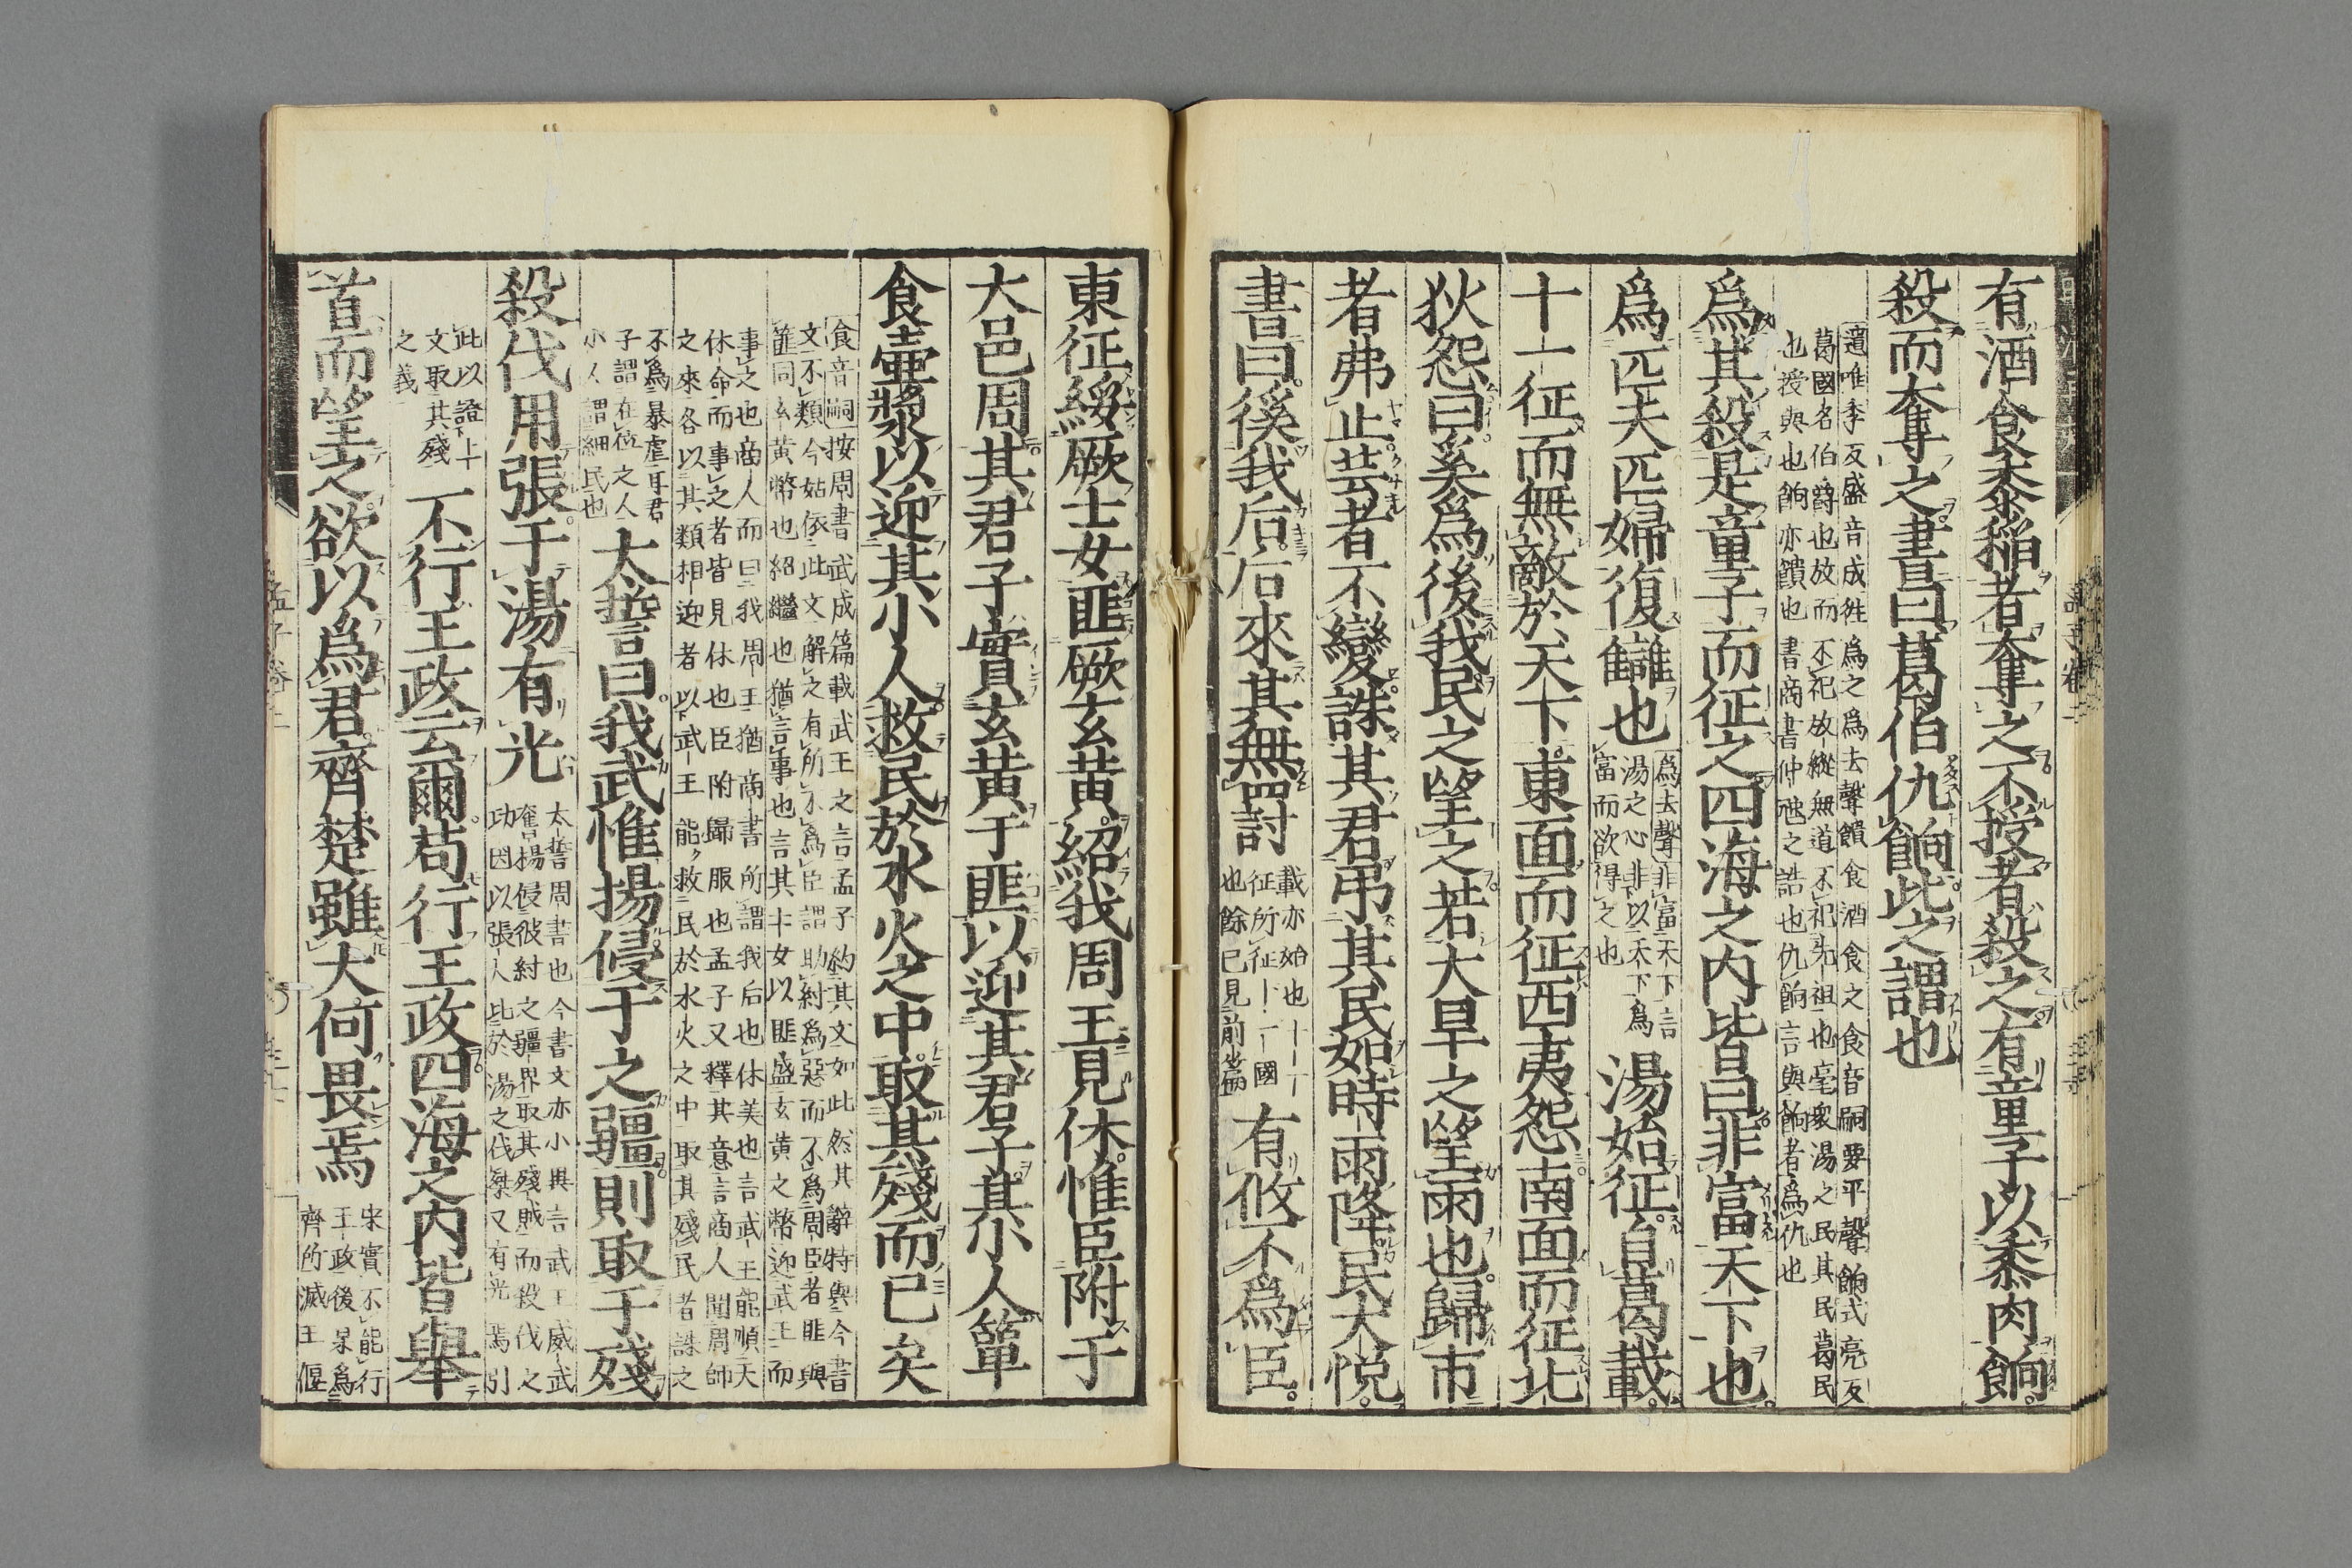 有酒食黍稻者奪之不授者殺之有童子以黍肉餉
殺而奪之書曰葛伯仇餉此之謂也
遺唯季反盛音成徃爲之爲去聲饋食酒食之食音嗣要平聲餉式亮反
葛國名伯爵也放而不祀放縱無道不祀先祖也亳衆湯之民其民葛民
也授與也餉亦饋也書商書仲虺之誥也仇餉言與餉者爲仇也
爲其殺是童子而征之四海之内皆曰非富天下也
爲匹夫匹婦復讎也
爲去聲非富天下言
湯之心非以天下爲
富而欲得之也
湯始征自葛載
十一征而無敵於天下東面而征西夷怨南面而征北
狄怨曰奚爲後我民之望之若大旱之望雨也歸市
者弗止芸者不變誅其君弔其民如時雨降民大悦
書曰徯我后后來其無罰
載亦始也十一
征所征十一國
也餘已見前篇
有攸不爲臣
東征綏厥士女匪厥玄黄紹我周王見休惟臣附于
大邑周其君子實玄黄于匪以迎其君子其小人簞
食壷漿以迎其小人救民於水火之中取其殘而已矣
食音嗣按周書武成篇載武王之言孟子約其文如此然其辭特與今書
文不類今姑依此文解之有所不爲臣謂助紂爲惡而不爲周臣者匪與
篚同玄黄幣也紹繼也猶言事也言其士女以匪盛玄黄之幣迎武王而
事之也商人而曰我周王猶商書所謂我后也休美也言武王能順天
休命而事之者皆見休也臣附歸服也孟子又釋其意言商人聞周師
之來各以其類相迎者以武王能救民於水火之中取其殘民者誅之
不爲暴虐耳君
子謂在位之人
小人謂細民也
太誓曰我武惟揚侵于之疆則取于殘
殺伐用張于湯有光
太誓周書也今書文亦小異言武王威武
奮揚侵彼紂之疆界取其殘賊而殺伐之
功因以張大比於湯之伐桀又有光焉引
此以證上
文取其殘
之義
不行王政云爾苟行王政四海之内皆舉
首而望之欲以爲君齊楚雖大何畏焉
宋實不能行
王政後果爲
齊所滅王偃